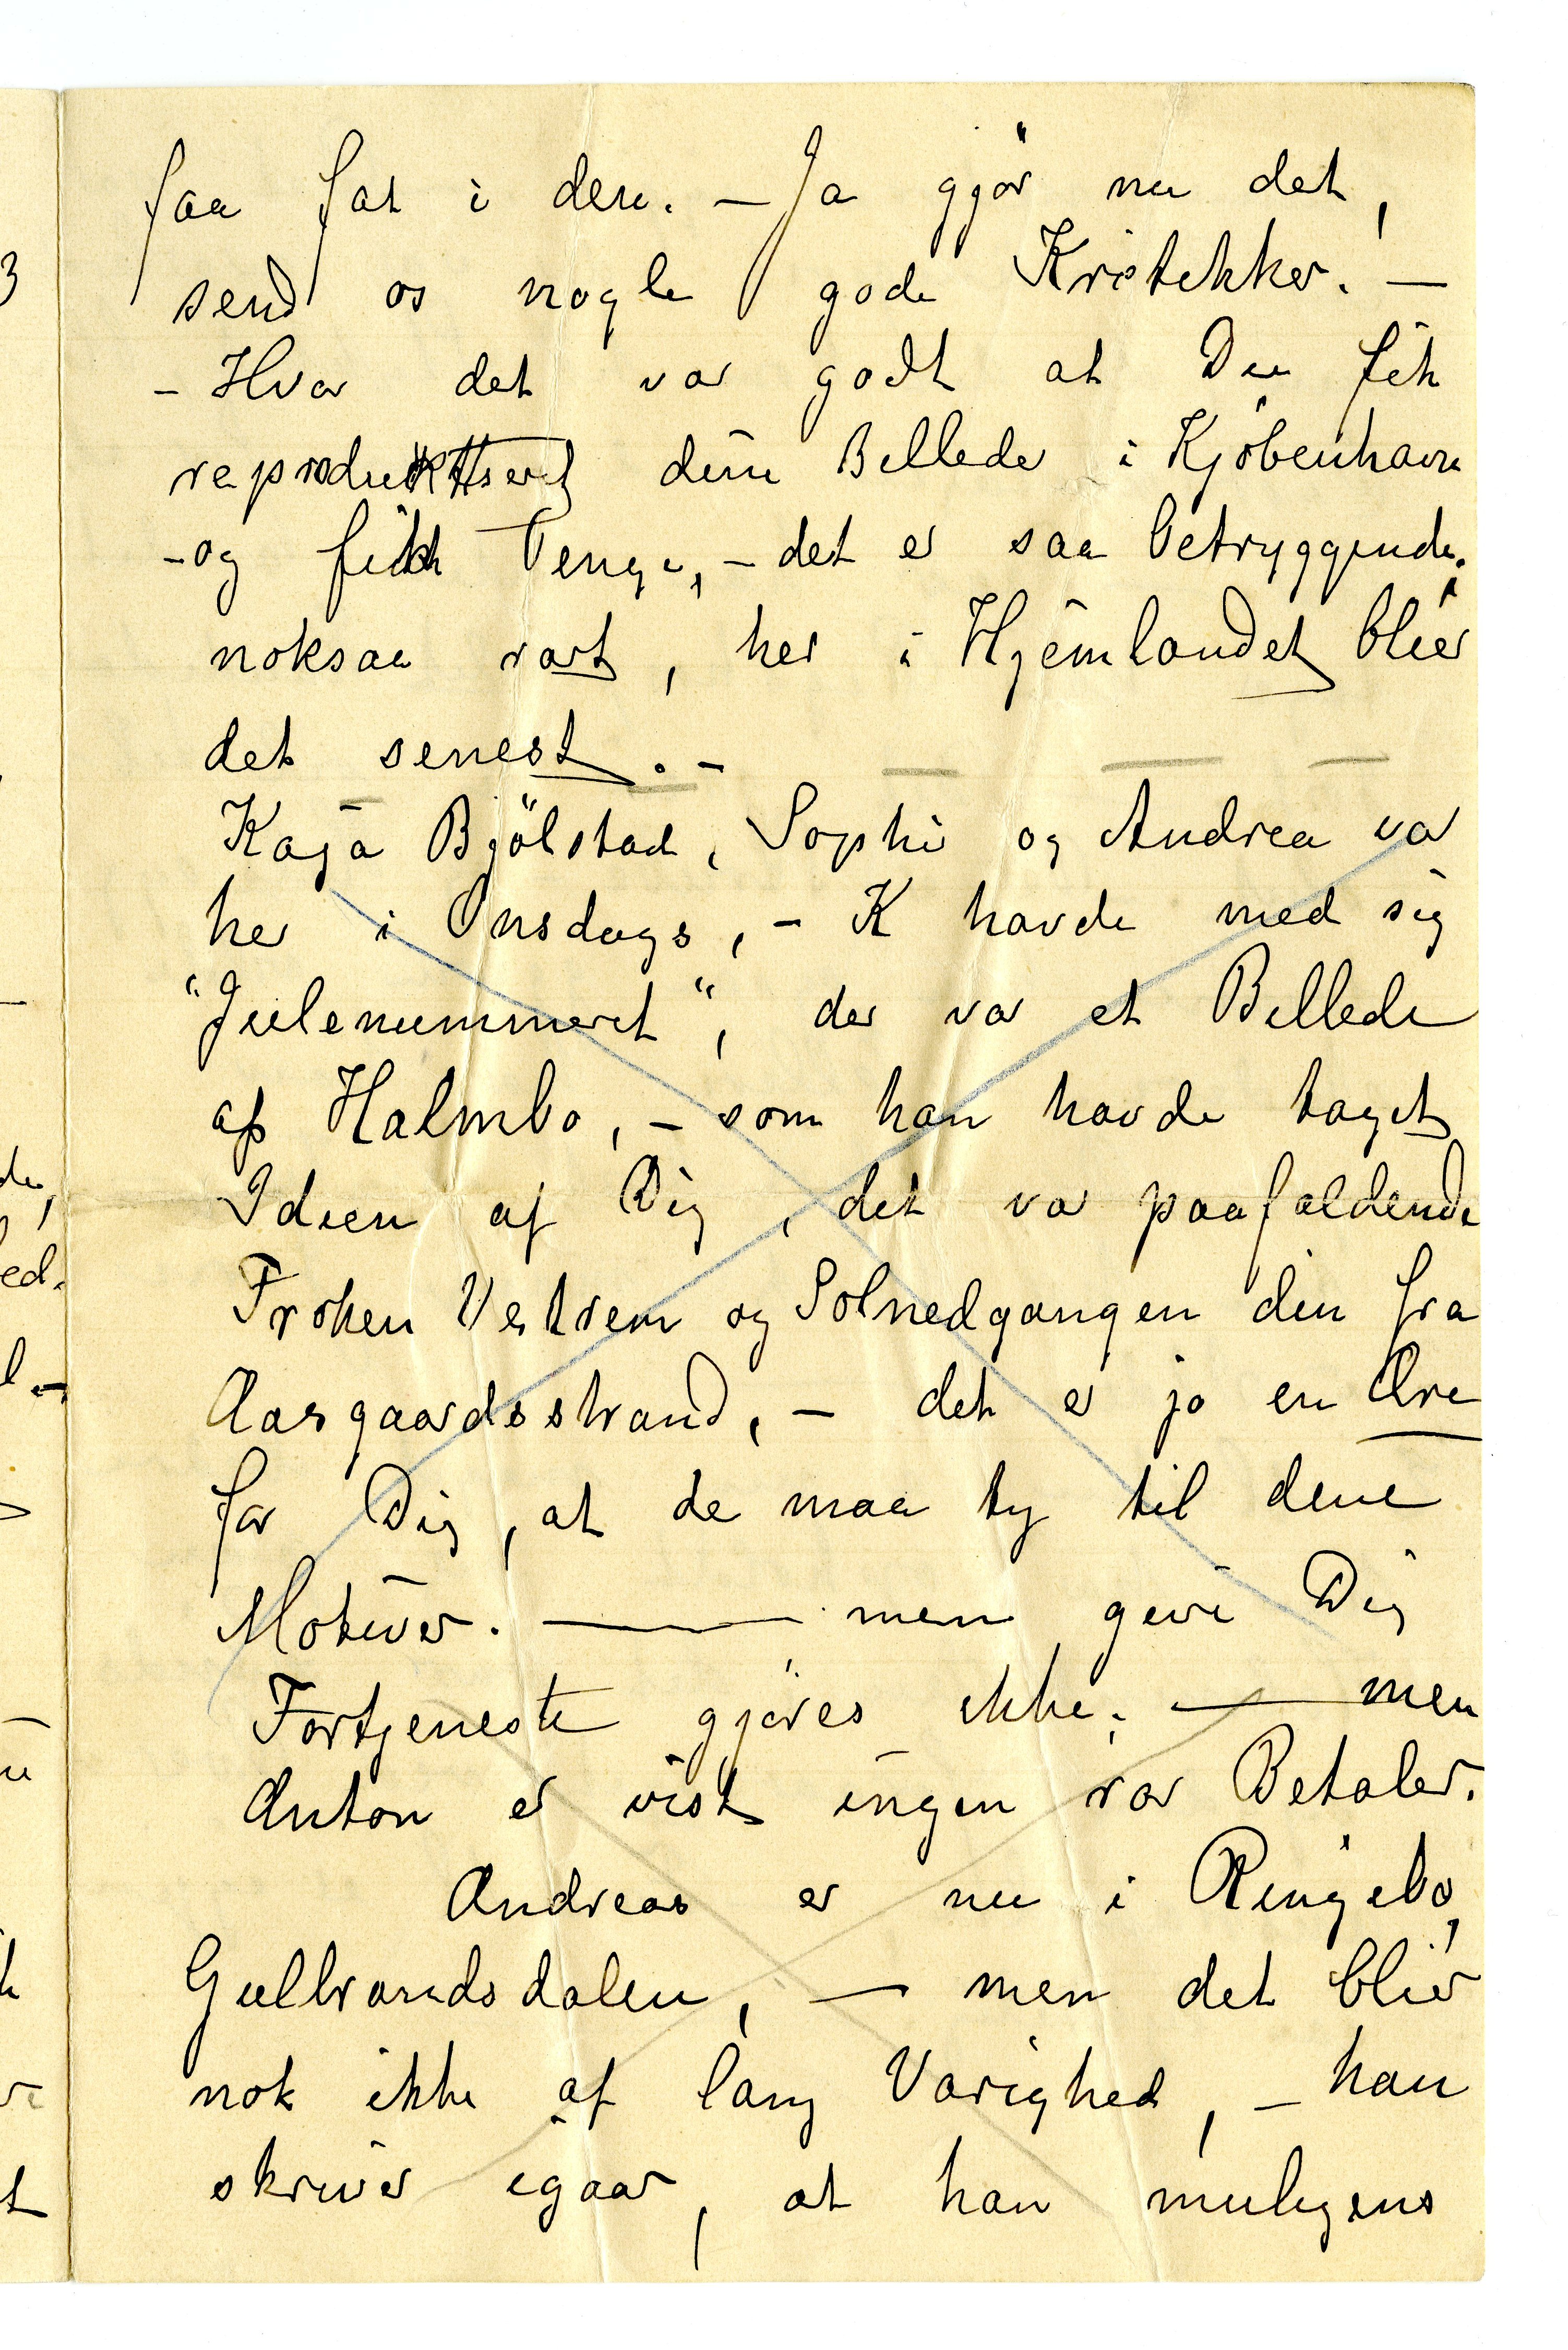 faa fat i dem. – Ja gjör nu det,
send os nogle gode Kritikker. –
– Hvor det var godt at Du fik
reproduktseret dine Billeder i Kjöbenhavn
– og fikk Penge, – det er saa betryggende.
noksaa rart, her i Hjemlandet blier
det senest. –
Kaja Bjölstad, Sophi og Andrea var
her i Onsdags, – K havde med sig
"Julenummeret", der var et Billede
af Halmbo, – som han havde taget
Ideen af Dig, det var paafaldende
Froken Vestrem og Solnedgangen din fra
Aasgaardsstrand, – det er jo en Ære
for Dig, at de maa ty til dine
Motiver. — men give Dig
Fortjeneste gjøres ikke. — men
Anton er vist ingen rar Betaler.
Andreas er nu i Ringebo,
Gulbrandsdalen, – men det blir
nok ikke af lang Varighed, – han
skriver igaar, at han muligens
3
de,
ed.